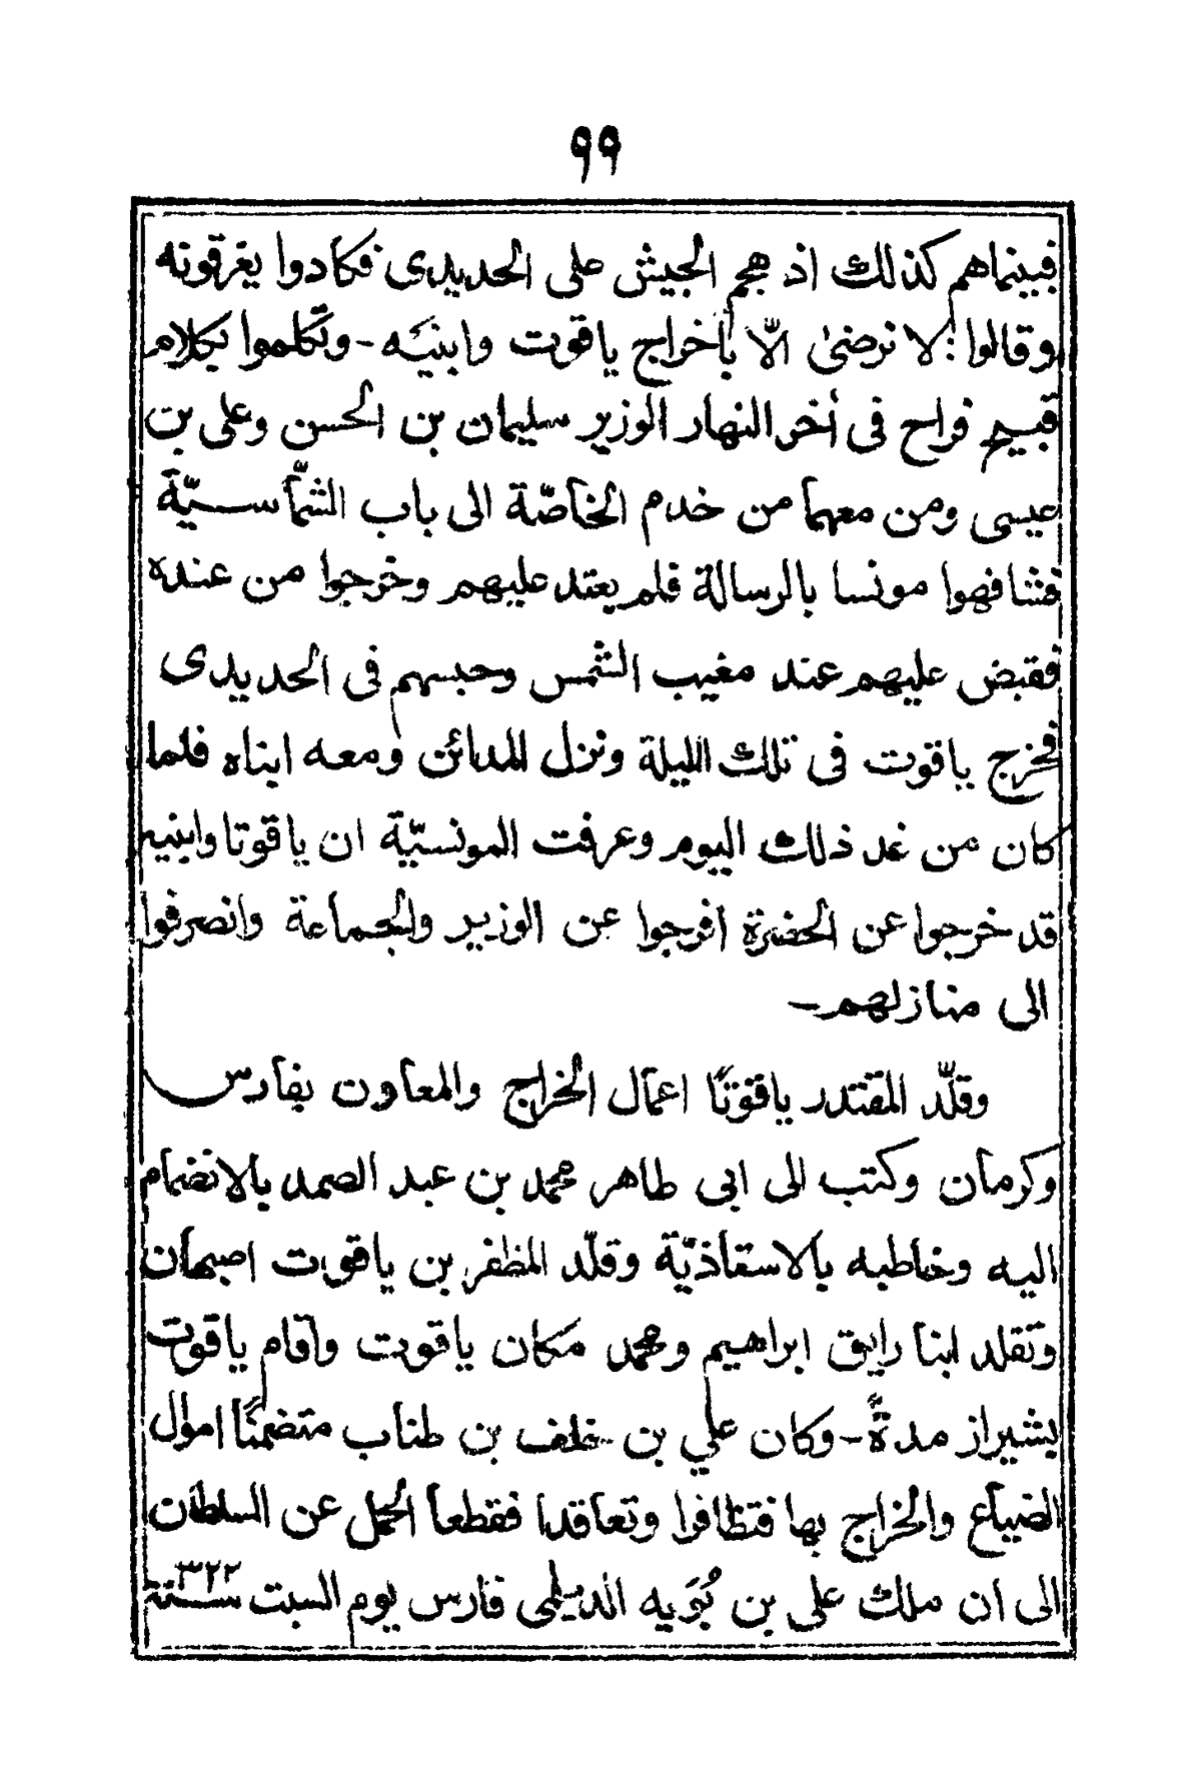 ٩٩
فبينماهم كذلك اذ هجم الجيش على الحديدى فكادوا يغرقونه
وقالوا: لا نرضىٰ الّا بأخراج ياقوت وابنيَه - وتكّلموا بكلام
قبيح فراح فى أخر النهار الوزير سليمان بن الحسن وعلى بن
عيسى ومن معهما من خدم الخاصّة الى باب الشمّاسـيّة
فشافهوا مونسا بالرسالة فلم يعتد عليهم وخرجوا من عنده
فقبض عليهم عند مغيب الشمس وحبسهم فى الحديدى
فخرج ياقوت فى تلك الليلة ونزل المدائن ومعه ابناه فلما
كان من غد ذلك اليوم وعرفت المونسيّة ان ياقوتا وابنيه
قد خرجوا عن الحضرة افرجوا عن الوزير والجماعة وانصرفوا
الى منازلهم –
وقلّد المقتدر ياقوتًا اعمال الخراج والمعاون بفارس
وكرمان وكتب الى ابى طاهر محمد بن عبد الصمد بالانضمام
اليه وخاطبه بالاستاذيّة وقلّد المظفر بن ياقوت اصبهان
وتقلد ابنا رايق ابراهيم ومحمد مكان ياقوت واقام ياقوت
بشيراز مدةً - وكان علي بن خلف بن طناب متضمنًا اموال
الضياع والخراج بها فتظافرا وتعاقدا فقطعا الحمل عن السلطان
الى ان ملك على بن بُوَيه الديلمى فارس يوم السبت سـنة ٣٢٢